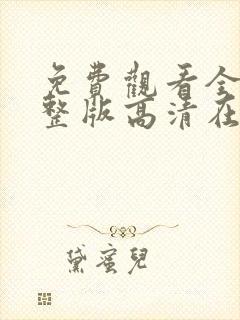 免費觀看全
整版高清在
黛蜜兒